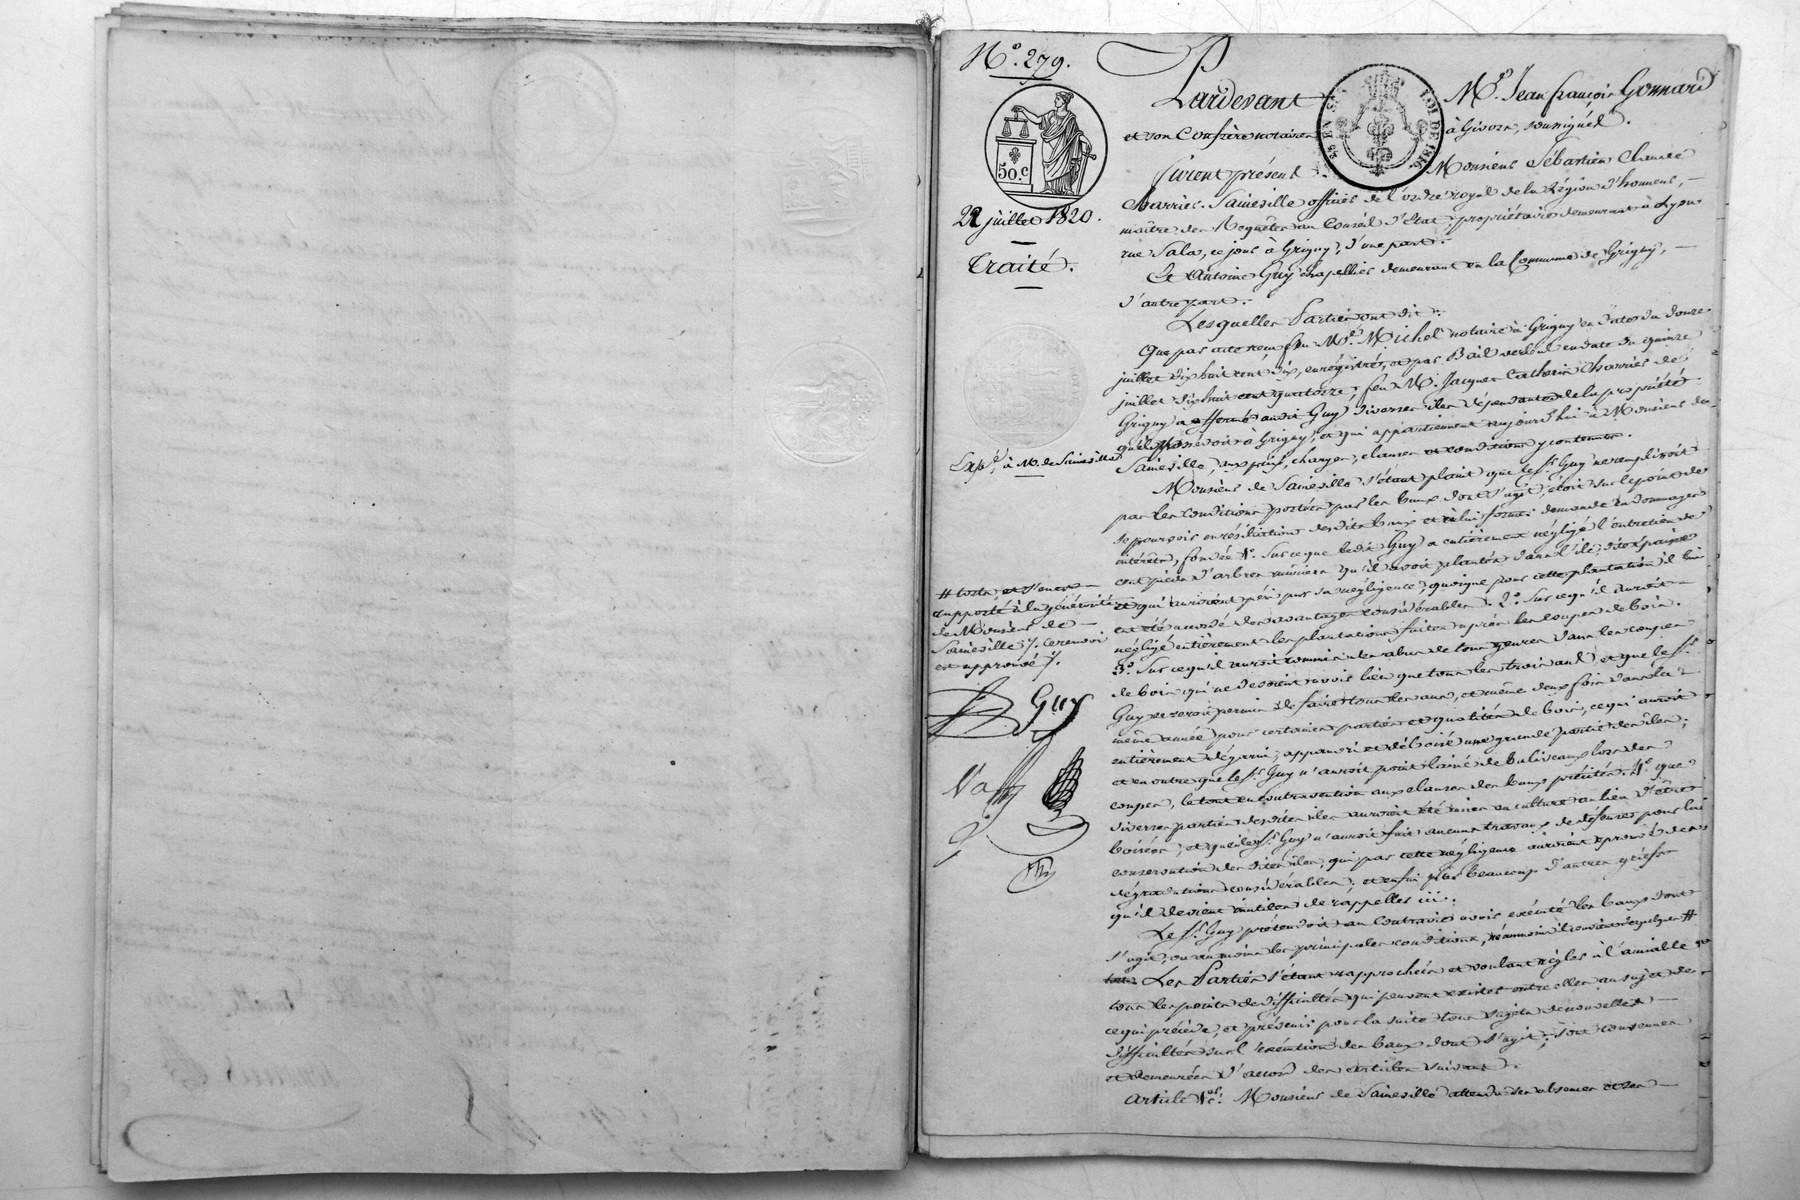 N.° 279.
50.c
22 juillet 1820.
Traité.
Exp.é à M. de Sainneville
# torts, et s'en est
rapporté à la générosité
de Monsieur de
Sainneville /. Ce renvoi
est approuvé /.
Guy
Pardevant M.e Jean françois Gonnard
et son Confrère notaires à Givors, soussignés.
LOI DE 1816.
furent présens Monsieur Sébastien Claude
Charrier-Sainneville officier de l'ordre royal de la Légion d'honneur,
maître des Requêtes au Conseil d'Etat, propriétaire demeurant à Lyon
rue Sala, ce jour à Grigny, d'une part.
Et Antoine Guy chapellier demeurant en la Commune de Grigny,
d'autre part.
Lesquelles Parties ont dit:
Que par acte reçu feu M.e Michel notaire à Grigny en date du douze
juillet dix huit cent dix, enregistré, et par Bail verbal en date du quinze
juillet dix huit cent quatorze, feu M. Jacques Catherin Charrier de
Grigny a affermé audit Guy diverses iles dépendantes de la propriété
qu'il possédoit à Grigny, et qui appartiennent aujourd'hui à Monsieur de
Sainneville, aux prix, charges, clauses et conditions y contenues.
Monsieur de Sainneville s'étant plaint que le S.r Guy ne remplissoit
pas les conditions portées par les baux dont s'agit, étoit sur le point de
se pourvoir en résiliation desdits baux et à lui former demande en dommages
intérêts, fondée 1.° Sur ce que ledit Guy a entièrement négligé l'entretien de
cent pieds d'arbres muriers qu'il avoit plantés dans l'ile
et qui auroient péri par sa négligence, quoique pour cette plantation il lui
eut été accordé des avantages considérables. 2.° Sur ce qu'il auroit
négligé entièrement les plantations faites après les coupes de bois.
3.° Sur ce qu'il auroit commis des abus de tous genres dans les coupes
de bois qui ne devoient avoir lieu que tous les trois ans, et que le S.r
Guy se seroit permis de faire tous les ans, et même deux fois dans la
même année pour certaines parties et qualités de bois, ce qui auroit
entièrement dégarni, appauvri et déboisé une grande partie des iles;
et en outre que le S.r Guy n'auroit point laissé de baliveaux lors des
coupes, le tout en contravention aux clauses des baux précités. 4.° que
diverses parties desdites iles auroient été mises en culture au lieu d'être
boisées, et que le S.r Guy n'auroit fait aucuns travaux de défenses pour la
conservation desdites iles, qui par cette négligence auroient éprouvé des
dégradations considérables; et enfin pour beaucoup d'autres griefs
qu'il devient inutile de rappeller ici.
Le S.r Guy prétendoit au contraire avoir exécuté les baux dont
s'agit, ou au moins les principales conditions, néanmoins il reconnoit quelques #
Les Parties s'étant rapprochées et voulant régler à l'amiable
tous les points de difficultés qui peuvent exister entre elles au sujet de
ce qui précède, et prévenir pour la suite tous sujets de nouvelles
difficultés sur l'exécution des baux dont s'agit, sont convenues
et demeurées d'accord des articles suivans.
Article 1.er Monsieur de Sainneville attendu ses absences et ses